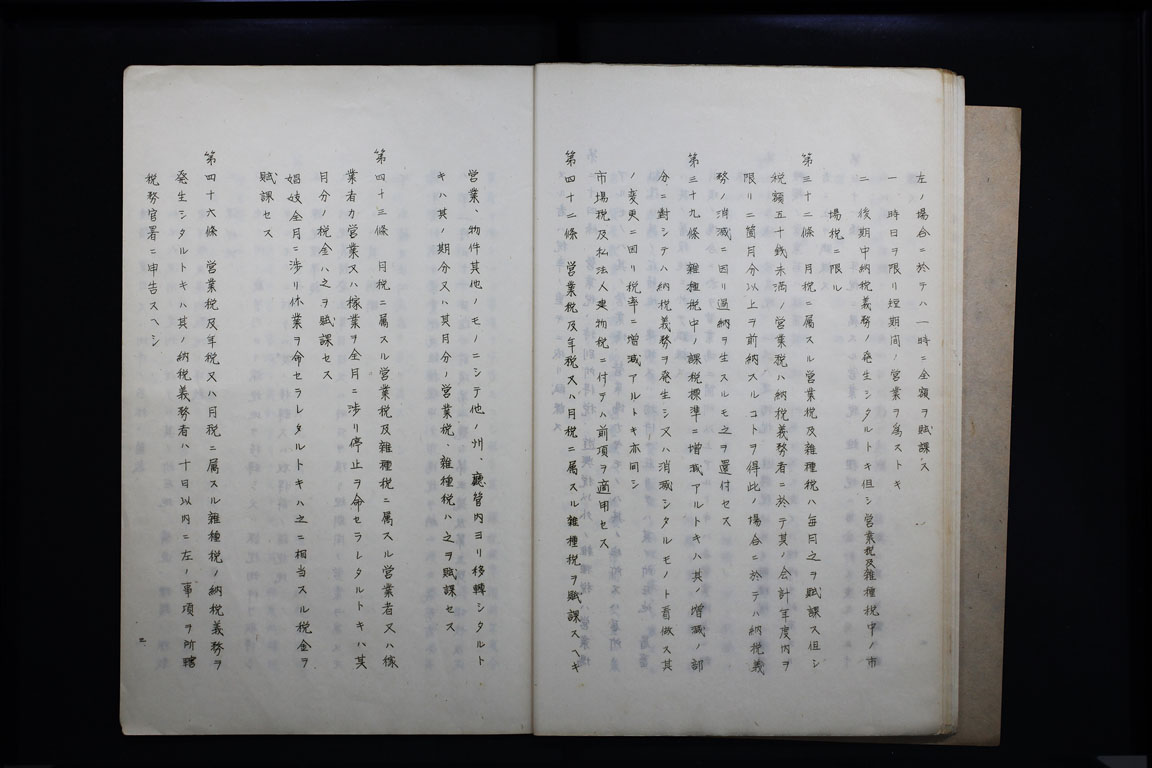 左ノ場合ニ於テハ一時ニ全額ヲ賦課ス
一 時日ヲ限リ短期間ノ営業ヲ為ストキ
二 後期中納税義務ノ発生シタルトキ但シ営業税及雑種税中ノ市
場税ニ限ル
第三十二條 月税ニ属スル営業税及雑種税ハ毎月之ヲ賦課ス但シ
税額五十銭未満ノ営業税ハ納税義務者ニ於テ其ノ会計年度内ヲ
限リ二箇月分以上ヲ前納スルコトヲ得此ノ場合ニ於テハ納税義
務ノ消滅ニ因リ過納ヲ生スルモ之ヲ還付セス
第三十九條 雜種税中ノ課税標準ニ増減アルトキハ其ノ増減ノ部
分ニ對シテハ納税義務ヲ発生シ又ハ消滅シタルモノト看做ス其
ノ変更ニ因リ税率ニ増減アルトキ亦同シ
市場税及私法人建物税ニ付テハ前項ヲ適用セス
第四十二條 営業税及年税又ハ月税ニ属スル雜種税ヲ賦課スヘキ
営業、物件其他ノモノニシテ他ノ州、廳管内ヨリ移轉シタルト
キハ其ノ期分又ハ其月分ノ営業税、雜種税ハ之ヲ賦課セス
第四十三條 月税ニ属スル営業税及雜種税ニ属スル営業者又ハ稼
業者カ営業又ハ稼業ヲ全月ニ渉リ停止ヲ命セラレタルトキハ其
月分ノ税金ハ之ヲ賦課セス
娼妓全月ニ渉リ休業ヲ命セラレタルトキハ之ニ相当スル税金ヲ
賦課セス
第四十六條 営業税及年税又ハ月税ニ属スル雜種税ノ納税義務ヲ
発生シタルトキハ其ノ納税義務者ハ十日以内ニ左ノ事項ヲ所轄
税務官署ニ申告スヘシ
二